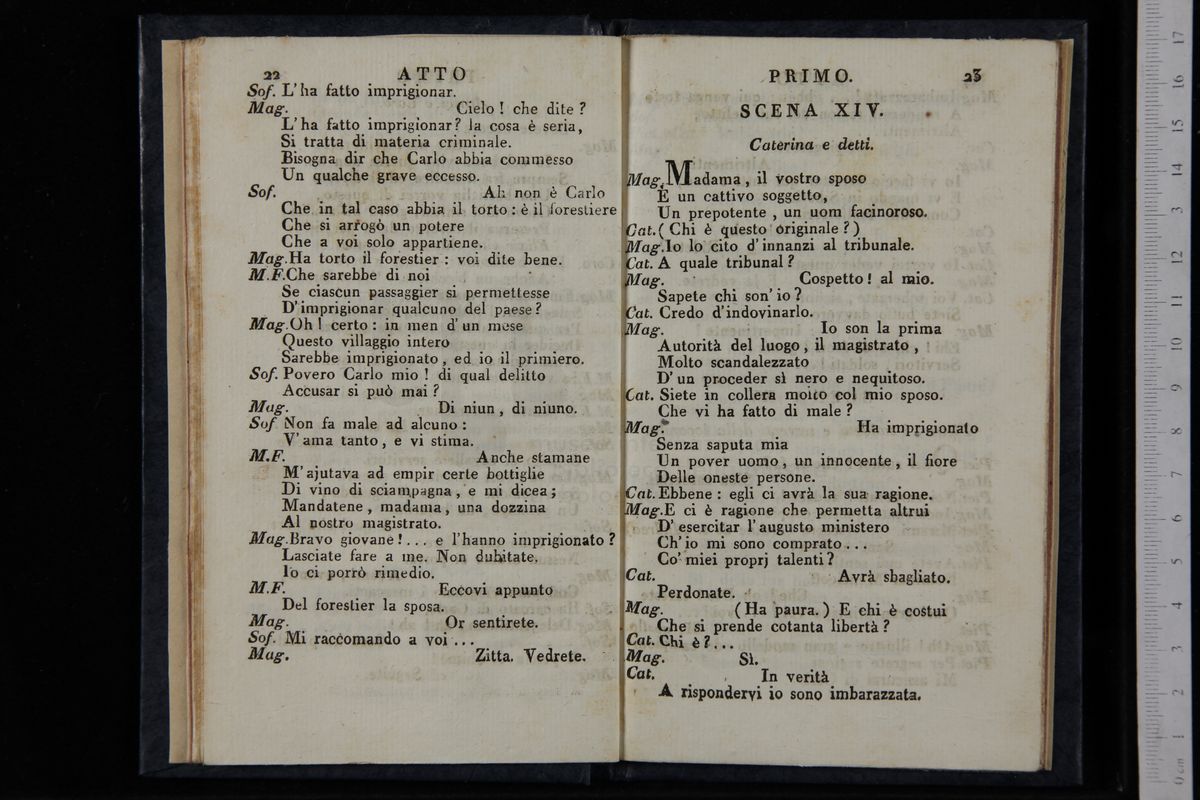 22 ATTO
Sof. L'ha fatto imprigionar.
Mag. Cielo! che dite?
L'ha fatto imprigionar? la cosa è seria,
Si tratta di materia criminale.
Bisogna dir che Carlo abbia commesso
Un qualche grave eccesso.
Sof. Ah non è Carlo
Che in tal caso abbia il torto: è il forestiere
Che si arrogò un potere
Che a voi solo appartiene.
Mag. Ha torto il forestier: voi dite bene.
M.F. Che sarebbe di noi
Se ciascun passaggier si permettesse
D'imprigionar qualcuno del paese?
Mag. Oh! certo: in men d'un mese
Questo villaggio intero
Sarebbe imprigionato, ed io il primiero.
Sof. Povero Carlo mio! di qual delitto
Accusar si può mai?
Mag. Di niun, di niuno.
Sof Non fa male ad alcuno:
V'ama tanto, e vi stima.
M.F. Anche stamane
M'ajutava ad empir certe bottiglie
Di vino di sciampagna, e mi dicea;
Mandatene, madama, una dozzina
Al nostro magistrato.
Mag. Bravo giovane!... e l'hanno imprigionato?
Lasciate fare a me. Non dubitate.
Io ci porrò rimedio.
M.F. Eccovi appunto
Del forestier la sposa.
Mag. Or sentirete.
Sof. Mi raccomando a voi...
Mag. Zitta. Vedrete.
PRIMO. 23
SCENA XIV.
Caterina e detti.
Mag. Madama, il vostro sposo
E un cattivo soggetto,
Un prepotente, un uom facinoroso.
Cat. (Chi è questo originale?)
Mag. Io lo cito d'innanzi al tribunale.
Cat. A quale tribunal?
Mag. Cospetto! al mio.
Sapete chi son'io?
Cat. Credo d'indovinarlo.
Mag. Io son la prima
Autorità del luogo, il magistrato,
Molto scandalezzato
D'un proceder sì nero e nequitoso.
Cat. Siete in collera molto col mio sposo.
Che vi ha fatto di male?
Mag. Ha imprigionato
Senza saputa mia
Un pover uomo, un innocente, il fiore
Delle oneste persone.
Cat. Ebbene: egli ci avrà la sua ragione.
Mag. E ci è ragione che permetta altrui
D'esercitar l'augusto ministero
Ch'io mi sono comprato...
Co' miei proprj talenti?
Cat. Avrà sbagliato.
Perdonate.
Mag. (Ha paura.) E chi è costui
Che si prende cotanta libertà?
Cat. Chi è?...
Mag. Sì.
Cat. In verità
A rispondervi io sono imbarazzata.
17
16
15
14
13
12
11
10
9
8
7
6
5
4
3
2
1
0 cm